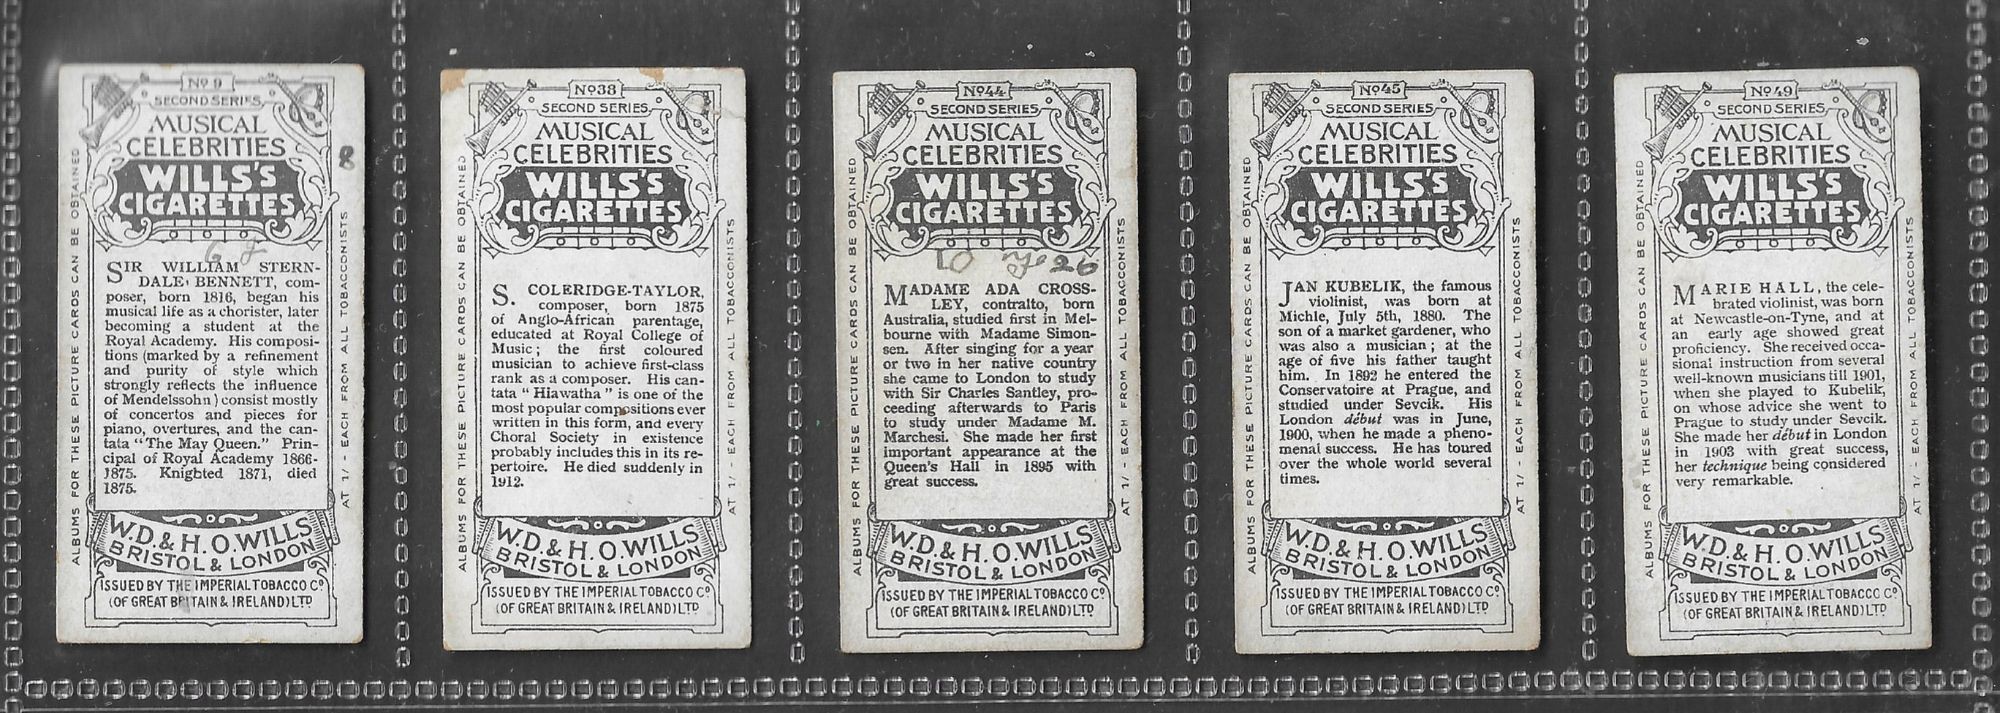 No 9
SECOND SERIES
MUSICAL
CELEBRITIES
WILLS'S
CIGARETTES
8
6
SIR WILLIAM STERN-
DALE BENNETT, com-
poser, born 1816, began his
musical life as a chorister, later
becoming a student at the
Royal Academy. His composi-
tions (marked by a refinement
and purity of style which
strongly reflects the influence
of Mendelssohn) consist mostly
of concertos and pieces for
piano, overtures, and the can-
tata "The May Queen." Prin-
cipal of Royal Academy 1866-
1875. Knighted 1871, died
1875.
W.D. & H.O. WILLS
BRISTOL & LONDON
ISSUED BY THE IMPERIAL TOBACCO Co
(OF GREAT BRITAIN & IRELAND) LTD
ALBUMS FOR THESE PICTURE CARDS CAN BE OBTAINED
AT 1/- EACH FROM ALL TOBACCONISTS
No 38
SECOND SERIES
MUSICAL
CELEBRITIES
WILLS'S
CIGARETTES
S. COLERIDGE-TAYLOR,
composer, born 1875
of Anglo-African parentage,
educated at Royal College of
Music; the first coloured
musician to achieve first-class
rank as a composer. His can-
tata "Hiawatha" is one of the
most popular compositions ever
written in this form, and every
Choral Society in existence
probably includes this in its re-
pertoire. He died suddenly in
1912.
W.D. & H.O. WILLS
BRISTOL & LONDON
ISSUED BY THE IMPERIAL TOBACCO Co
(OF GREAT BRITAIN & IRELAND) LTD
ALBUMS FOR THESE PICTURE CARDS CAN BE OBTAINED
AT 1/- EACH FROM ALL TOBACCONISTS
No 44
SECOND SERIES
MUSICAL
CELEBRITIES
WILLS'S
CIGARETTES
10 26
MADAME ADA CROSS-
LEY, contralto, born
Australia, studied first in Mel-
bourne with Madame Simon-
sen. After singing for a year
or two in her native country
she came to London to study
with Sir Charles Santley, pro-
ceeding afterwards to Paris
to study under Madame M.
Marchesi. She made her first
important appearance at the
Queen's Hall in 1895 with
great success.
W.D. & H.O. WILLS
BRISTOL & LONDON
ISSUED BY THE IMPERIAL TOBACCO Co
(OF GREAT BRITAIN & IRELAND) LTD
ALBUMS FOR THESE PICTURE CARDS CAN BE OBTAINED
AT 1/- EACH FROM ALL TOBACCONISTS
No 45
SECOND SERIES
MUSICAL
CELEBRITIES
WILLS'S
CIGARETTES
JAN KUBELIK, the famous
violinist, was born at
Michle, July 5th, 1880. The
son of a market gardener, who
was also a musician; at the
age of five his father taught
him. In 1892 he entered the
Conservatoire at Prague, and
studied under Sevcik. His
London début was in June,
1900, when he made a pheno-
menal success. He has toured
over the whole world several
times.
W.D. & H.O. WILLS
BRISTOL & LONDON
ISSUED BY THE IMPERIAL TOBACCO Co
(OF GREAT BRITAIN & IRELAND) LTD
ALBUMS FOR THESE PICTURE CARDS CAN BE OBTAINED
AT 1/- EACH FROM ALL TOBACCONISTS
No 49
SECOND SERIES
MUSICAL
CELEBRITIES
WILLS'S
CIGARETTES
MARIE HALL, the cele-
brated violinist, was born
at Newcastle-on-Tyne, and at
an early age showed great
proficiency. She received occa-
sional instruction from several
well-known musicians till 1901,
when she played to Kubelik,
on whose advice she went to
Prague to study under Sevcik.
She made her début in London
in 1903 with great success,
her technique being considered
very remarkable.
W.D. & H.O. WILLS
BRISTOL & LONDON
ISSUED BY THE IMPERIAL TOBACCO Co
(OF GREAT BRITAIN & IRELAND) LTD
ALBUMS FOR THESE PICTURE CARDS CAN BE OBTAINED
AT 1/- EACH FROM ALL TOBACCONISTS